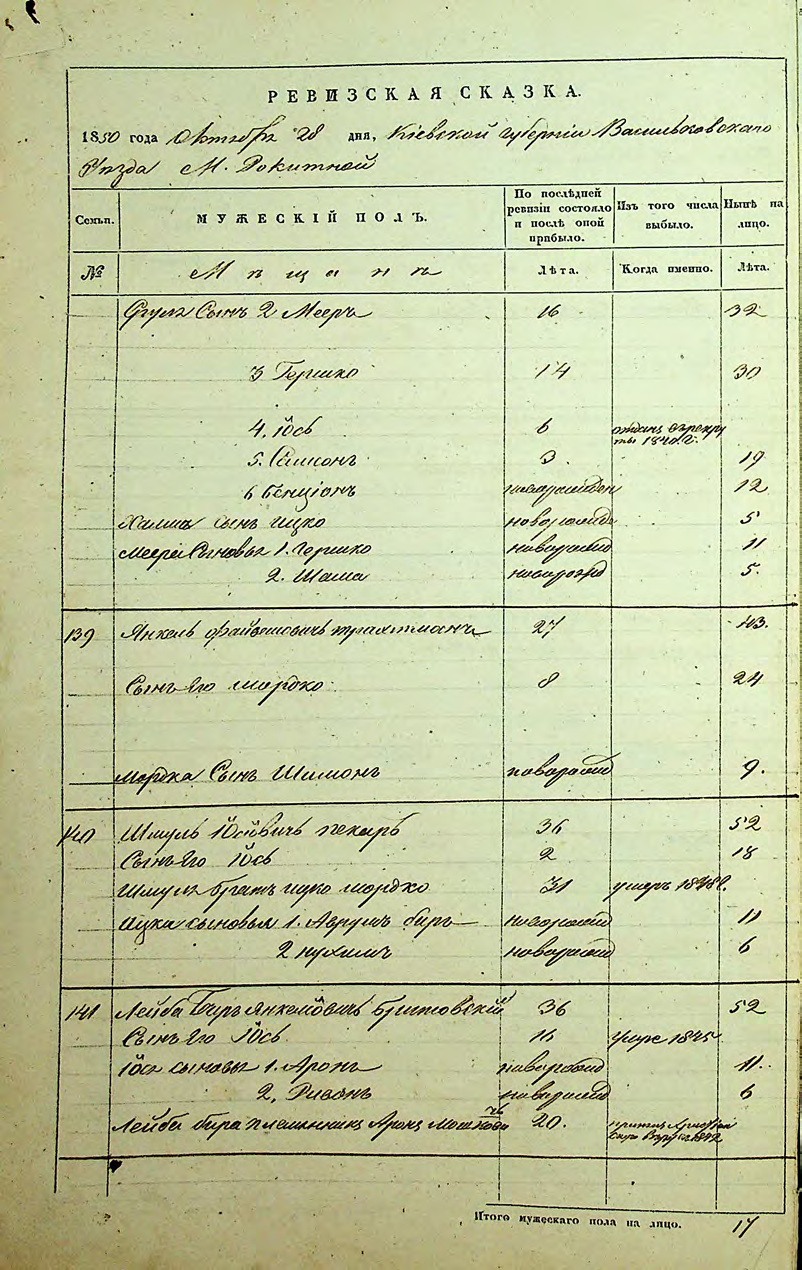 РЕВИЗСКАЯ СКАЗКА.
1850 года Октября 28 дня, Кіевской губерніи Васильковскаго
Уѣзда М. Рокитной
Семьи. МУЖЕСКІЙ ПОЛЪ. По послѣдней ревизіи состояло и послѣ оной прибыло. Изъ того числа выбыло. Нынѣ на лицо.
№ Мѣщанѣ Лѣта. Когда именно. Лѣта.
Сынъ 2 Мееръ 16 32
3 Гершко 14 30
4. Іось 6 отданъ въ рекру
ты 1840 г.
5. Самсонъ 3. 19
6 Бенціонъ новорожден 12
сынъ Ицко новорожде 5
Меера Сыновья 1. Гершко новорожд 11
2. Шама новорожд 5.
139 Янкель Файвишовичъ Трахтманъ 27 43.
Сынъ Его Мордко 8 24
Мордка Сынъ Шимонъ новорожд 9.
140 Шмуль Іосіовичъ Пекаръ 36 52
Сынъ Его Іось 2 18
Шмуля братъ Ицко Мордко 31 умеръ 1848.
Ицка сыновья 1. Аврумъ Беръ новорожд 11
2 Нухимъ новорожд 6
141 Лейба Беръ Янкеліовичъ 36 52
Сынъ Его Іось 16 умре 1845
Іося сыновья 1. Аронъ новорожд 11.
2. новорожд 6
Лейба Бера племянникъ Аронъ Мошкови
чъ 20.
1842
Итого мужескаго пола на лицо. 17